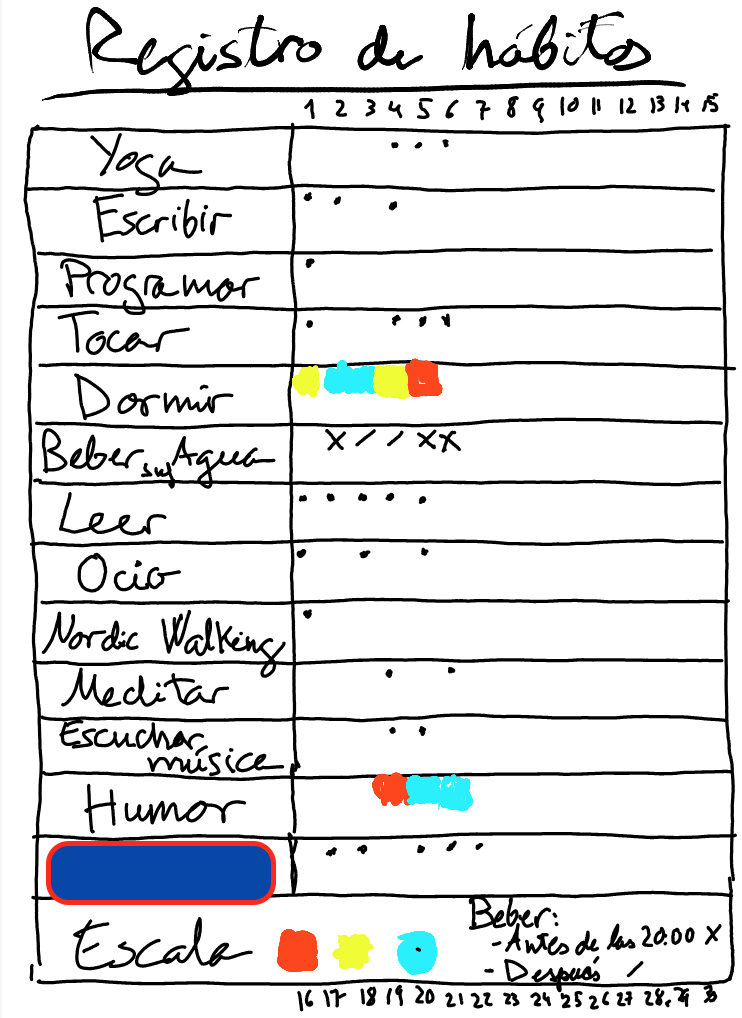 Registro de hábitos
1 2 3 4 5 6 7 8 9 10 11 12 13 14 15
Yoga
Escribir
Programar
Tocar
Dormir
X / / X X
Beber Agua
Leer
Ocio
Nordic Walking
Meditar
Escuchar
música
Humor
Escala
Beber:
- Antes de las 20:00 X
- Después /
16 17 18 19 20 21 22 23 24 25 26 27 28 29 30